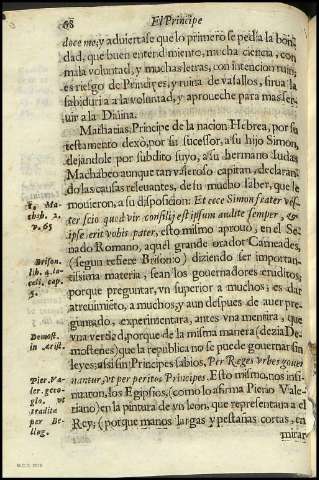 68 El Principe
doce me, y aduiertase que lo primero se pedia la bon
dad, que buen entendimiento, mucha ciencia, con
mala voluntad, y muchas letras, con intencion ruin,
es riesgo de Principes, y ruina de vasallos, sirua la
sabiduria a la voluntad, y aproueche para mas se-
uir a la Diuina.
Mathatias, Principe de la nacion Hebrea, por su
testamento dexò, por su sucessor, a su hijo Simon,
dejandole por subdito suyo, a su hermano Iudas
Machabeo aunque tan valeroso capitan, declaran
do las causas releuantes, de su mucho saber, que le
mouieron, a su disposicion: Et ecce Simon frater ves-
ter scio quod vir consilij est ipsum audite semper, &
ipse erit vobis pater, esto mismo aprouò, en el Se-
nado Romano, aquel grande orador Carneades,
(segun refiere Brisonio) diziendo ser importan-
tissima materia, sean los gouernadores eruditos;
porque preguntar, vn superior a muchos; es dar
atreuimiẽto, a muchos, y aun despues de auer pre-
guntado, experimentara, antes vna mentira, que
vna verdad, porque de la misma manera (dezia De-
mostenes) que la republica no se puede gouernar sin
leyes; assi sin Principes sabios, Per Reges vrbes gouer
nantur, vt per peritos Principes. Esto mismo, nos insi-
nuaron, los Egipsios, (como lo afirma Pierio Vale-
riano) en la pintura de vn leon, que representaua a el
Rey; (porque manos largas y pestañas cortas, en
mirar
1. Ma-
thab. 2.
v. 65
Brison.
lib. 4. la-
celi, cap.
5.
Demost.
in Arist.
Pier. Va-
ler. gero-
glo, vt
tradita
per Be-
llug.